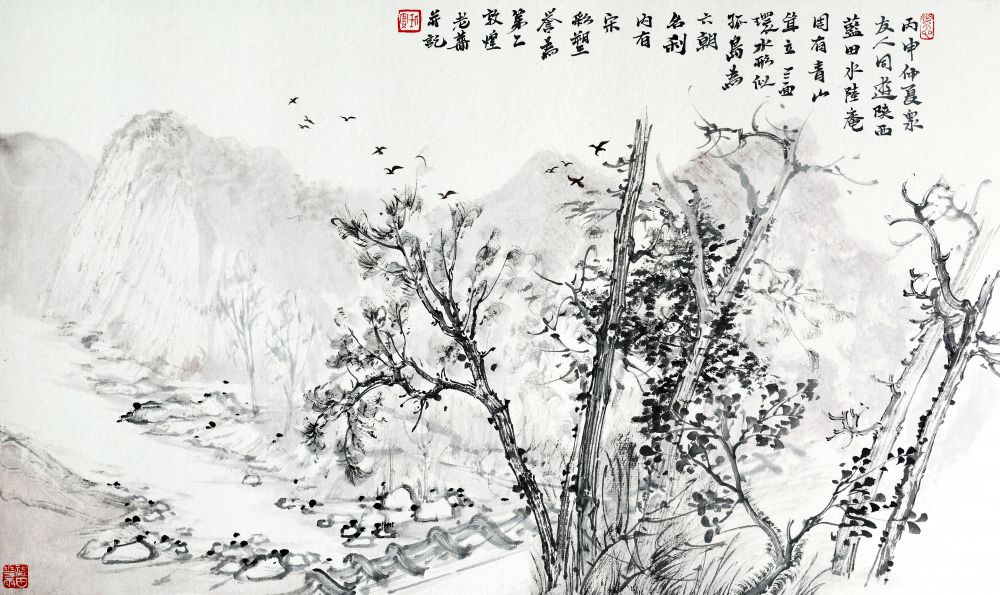 丙申仲夏
友人同遊陝西
藍田水陸庵
周有青山
耸立三面
環水形似
孤島為
六朝
名刹
內有
宋
彩塑
譽為
第二
敦煌
老
并記